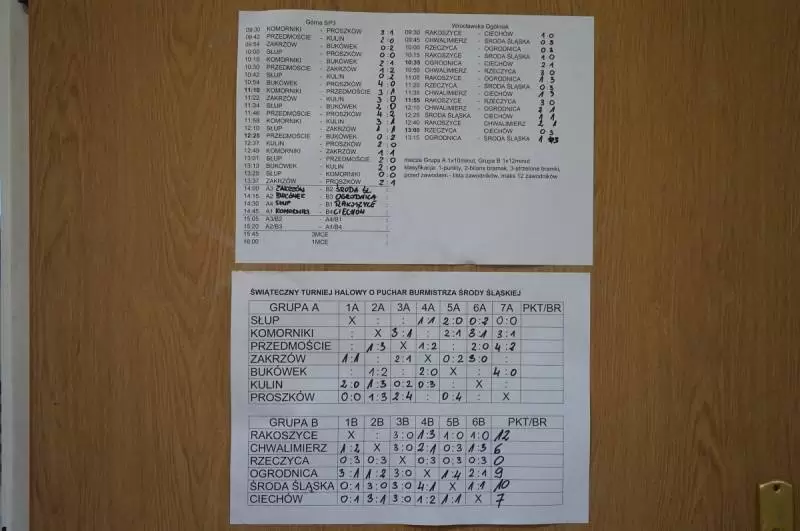 Górna S/P3
09:30 KOMORNIKI - PROSZKÓW 3:1
09:42 PRZEDMOŚCIE - KULIN 2:0
09:54 ZAKRZÓW - BUKÓWEK 0:2
10:06 SŁUP - PROSZKÓW 0:0
10:18 KOMORNIKI - BUKÓWEK 2:1
10:30 PRZEDMOŚCIE - ZAKRZÓW 1:2
10:42 SŁUP - KULIN 0:2
10:54 BUKÓWEK - PROSZKÓW 4:0
11:10 KOMORNIKI - PRZEDMOŚCIE 3:1
11:22 ZAKRZÓW - KULIN 3:0
11:34 SŁUP - BUKÓWEK 2:0
11:46 PRZEDMOŚCIE - PROSZKÓW 4:2
11:58 KOMORNIKI - KULIN 3:1
12:10 SŁUP - ZAKRZÓW 1:1
12:25 PRZEDMOŚCIE - BUKÓWEK 0:2
12:37 KULIN - PROSZKÓW 2:0
12:49 KOMORNIKI - ZAKRZÓW 1:1
13:01 SŁUP - PRZEDMOŚCIE 2:0
13:13 BUKÓWEK - KULIN 2:0
13:25 SŁUP - KOMORNIKI 0:0
13:37 ZAKRZÓW - PROSZKÓW 2:1
14:00 A3 ZAKRZÓW - B2 ŚRODA ŚL.
14:15 A2 BUKÓWEK - B3 OGRODNICA
14:30 A4 SŁUP - B1 RAKOSZYCE
14:45 A1 KOMORNIKI - B4 CIECHÓW
15:05 A3/B2 - A4/B1
15:20 A2/B3 - A1/B4
15:45 3MCE
16:00 1MCE
Wrocławska Ogólniak
09:30 RAKOSZYCE - CIECHÓW 1 0
09:45 CHWALIMIERZ - ŚRODA ŚLĄSKA 0 3
10:00 RZECZYCA - OGRODNICA 0 3
10:15 RAKOSZYCE - ŚRODA ŚLĄSKA 1 0
10:35 OGRODNICA - CIECHÓW 2 1
10:50 CHWALIMIERZ - RZECZYCA 3 0
11:05 RAKOSZYCE - OGRODNICA 1 3
11:20 RZECZYCA - ŚRODA ŚLĄSKA 0 3
11:35 CHWALIMIERZ - CIECHÓW 1 3
11:55 RAKOSZYCE - RZECZYCA 3 0
12:10 CHWALIMIERZ - OGRODNICA 2 1
12:25 ŚRODA ŚLĄSKA - CIECHÓW 1 1
12:40 RAKOSZYCE - CHWALIMIERZ 2 1
13:00 RZECZYCA - CIECHÓW 0 3
13:15 OGRODNICA - ŚRODA ŚLĄSKA 1
mecze Grupa A 1x10minut, Grupa B 1x12minut
klasyfikacja: 1-punkty, 2-bilans bramek, 3-strzelone bramki,
przed zawodami - lista zawodników, maks 12 zawodników
ŚWIĄTECZNY TURNIEJ HALOWY O PUCHAR BURMISTRZA ŚRODY ŚLĄSKIEJ
GRUPA A 1A 2A 3A 4A 5A 6A 7A PKT/BR
SŁUP X : : 1:1 2:0 0:2 0:0
KOMORNIKI : X 3:1 : 2:1 3:1 3:1
PRZEDMOŚCIE : 1:3 X 1:2 : 2:0 4:2
ZAKRZÓW 1:1 : 2:1 X 0:2 3:0 :
BUKÓWEK : 1:2 : 2:0 X : 4:0
KULIN 2:0 1:3 0:2 0:3 : X :
PROSZKÓW 0:0 1:3 2:4 : 0:4 : X
GRUPA B 1B 2B 3B 4B 5B 6B PKT/BR
RAKOSZYCE X : 3:0 1:3 1:0 1:0 12
CHWALIMIERZ 1:2 X 3:0 2:1 0:3 1:3 6
RZECZYCA 0:3 0:3 X 0:3 0:3 0:3 0
OGRODNICA 3:1 1:2 3:0 X 1:4 2:1 9
ŚRODA ŚLĄSKA 0:1 3:0 3:0 4:1 X 1:1 10
CIECHÓW 0:1 3:1 3:0 1:2 1:1 X 7